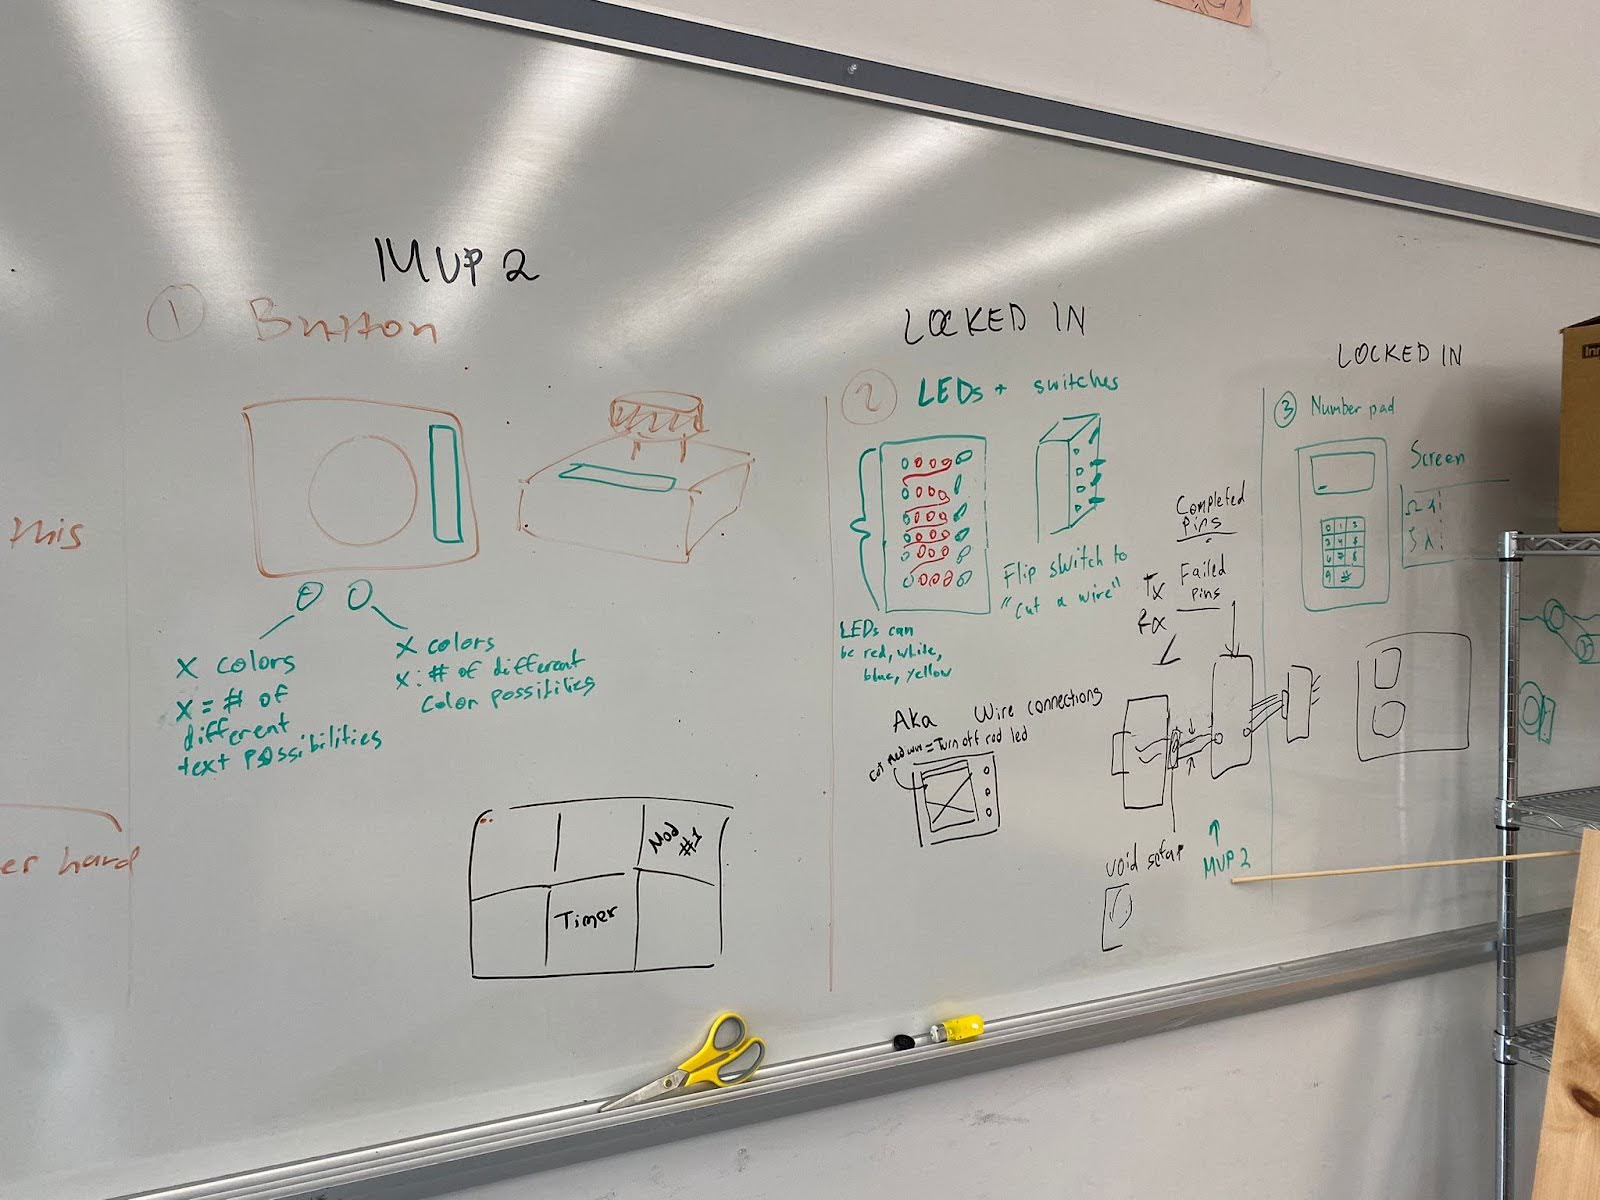 MVP 2
① Button
this
X colors
X = # of
different
text possibilities
X colors
X : # of different
color possitilies
er hard
Mod
#1
Timer
LOCKED IN
② LEDs + switches
Flip switch to
"cut a wire"
LEDs can
be red, white,
blue, yellow
Aka Wire connections
cut red wire = Turn off red led
Completed
Pins
Failed
Pins
Tx
Rx
void setup
MVP 2
LOCKED IN
③ Number pad
Screen